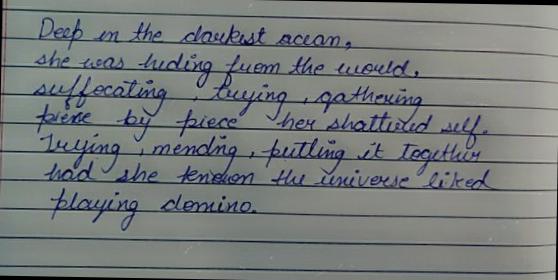 Deep in the darkest ocean,
she was hiding from the world,
suffocating, trying, gathering
piece by piece her shattered self.
Trying, mending, putting it together
had she the universe liked
playing domino.